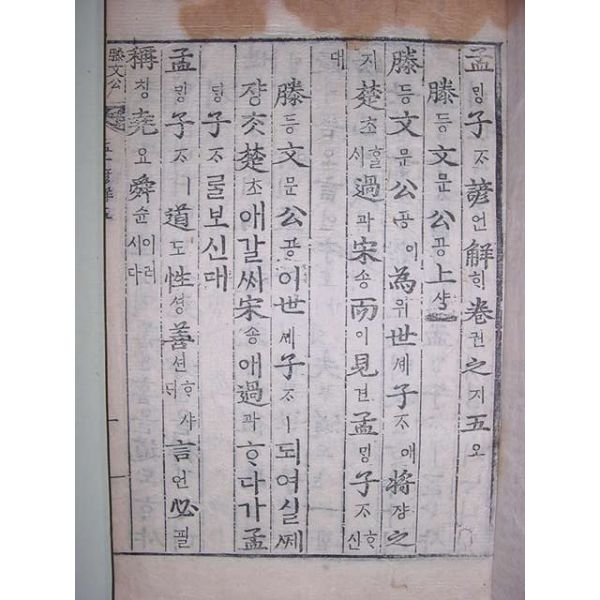 孟ᄆᆡᆼ子ᄌᆞ諺언解ᄒᆡ卷권之지五오
滕등文문公공上샹
滕등文문公공이為위世셰子ᄌᆞ애將쟝之
지楚초ᄒᆞᆯᄉᆡ過과宋송而이見견孟ᄆᆡᆼ子ᄌᆞᄒᆞ신
대
滕등文문公공이世셰子ᄌᆞㅣ되여실ᄶᅦ
쟝ᄎᆞᆺ楚초애갈ᄊᆡ宋송애過과ᄒᆞ다가孟
ᄆᆡᆼ子ᄌᆞᄅᆞᆯ보신대
孟ᄆᆡᆼ子ᄌᆞㅣ道도性셩善션ᄒᆞ샤ᄃᆡ言언必필
稱칭堯요舜슌이러시다
滕文公